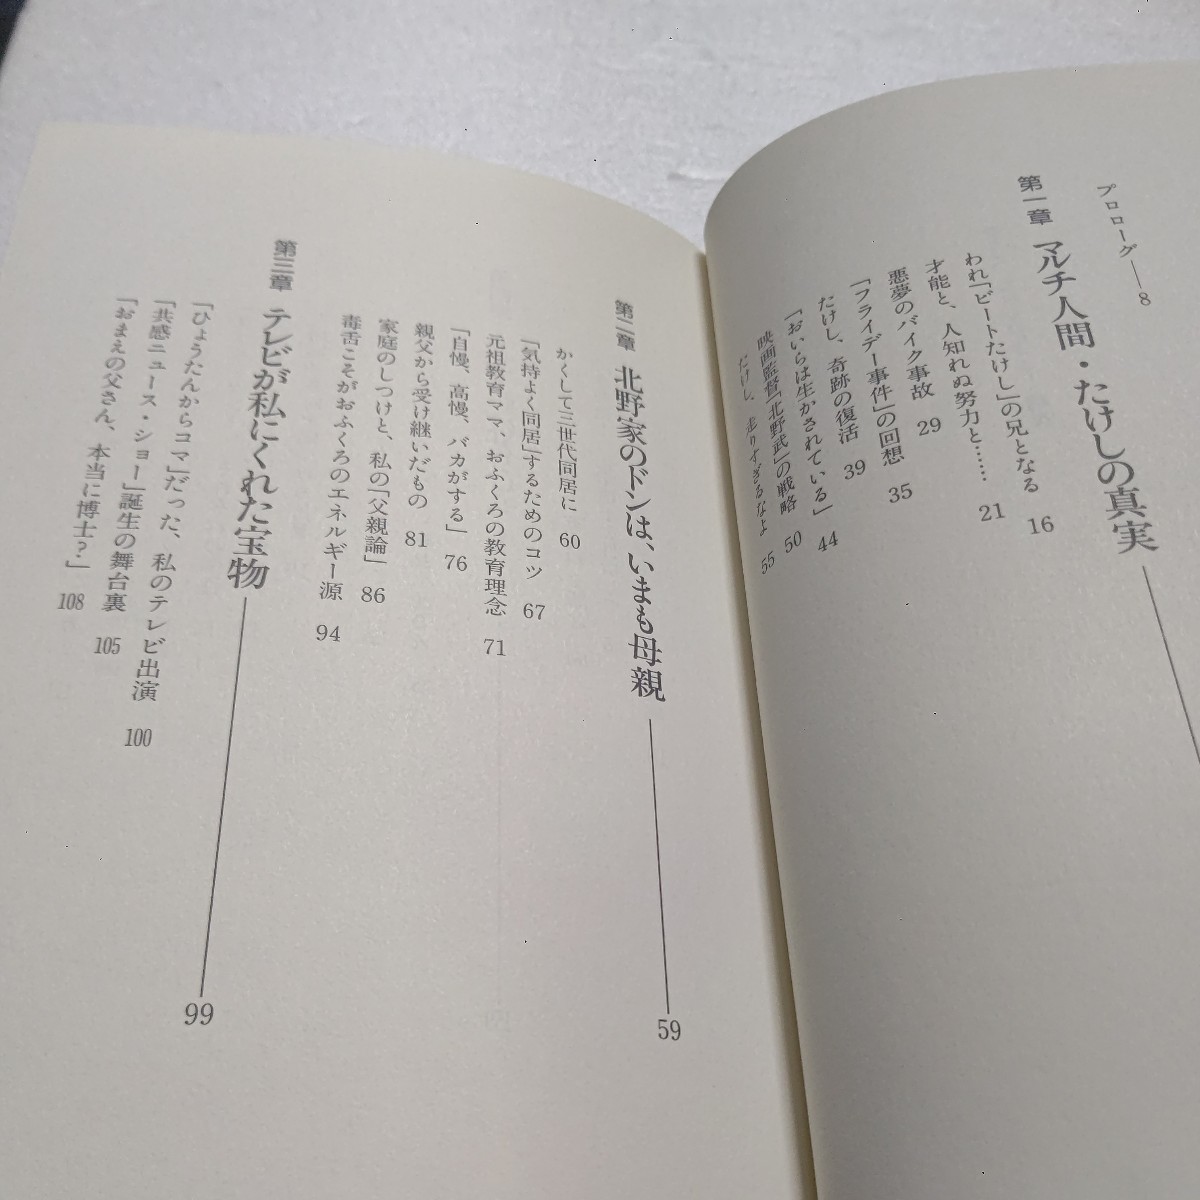 プロローグ――8
第一章 マルチ人間・たけしの真実
われ「ビートたけし」の兄となる 16
才能と、人知れぬ努力と…… 21
悪夢のバイク事故 29
「フライデー事件」の回想 35
たけし、奇跡の復活 39
「おいらは生かされている」 44
映画監督「北野武」の戦略 50
たけし、走りすぎるなよ 55
第二章 北野家のドンは、いまも母親――59
かくして三世代同居に 60
「気持よく同居」するためのコツ 67
元祖教育ママ、おふくろの教育理念 71
「自慢、高慢、バカがする」 76
親父から受け継いだもの 81
家庭のしつけと、私の「父親論」 86
毒舌こそがおふくろのエネルギー源 94
第三章 テレビが私にくれた宝物――99
「ひょうたんからコマ」だった、私のテレビ出演 100
「共感ニュース・ショー」誕生の舞台裏 105
「おまえの父さん、本当に博士？」 108